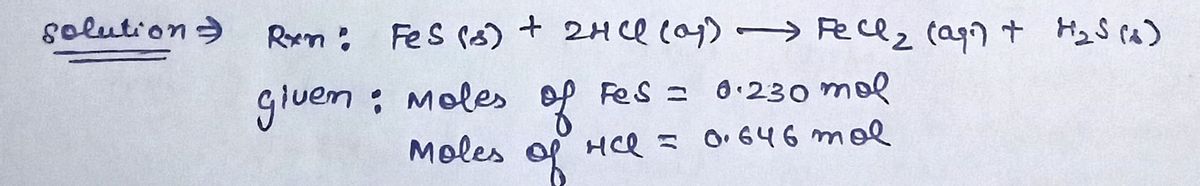 solution ⇒ Rxn : FeS (s) + 2HCl (aq) → FeCl₂ (aq) + H₂S (s)
given : Moles of FeS = 0.230 mol
Moles of HCl = 0.646 mol